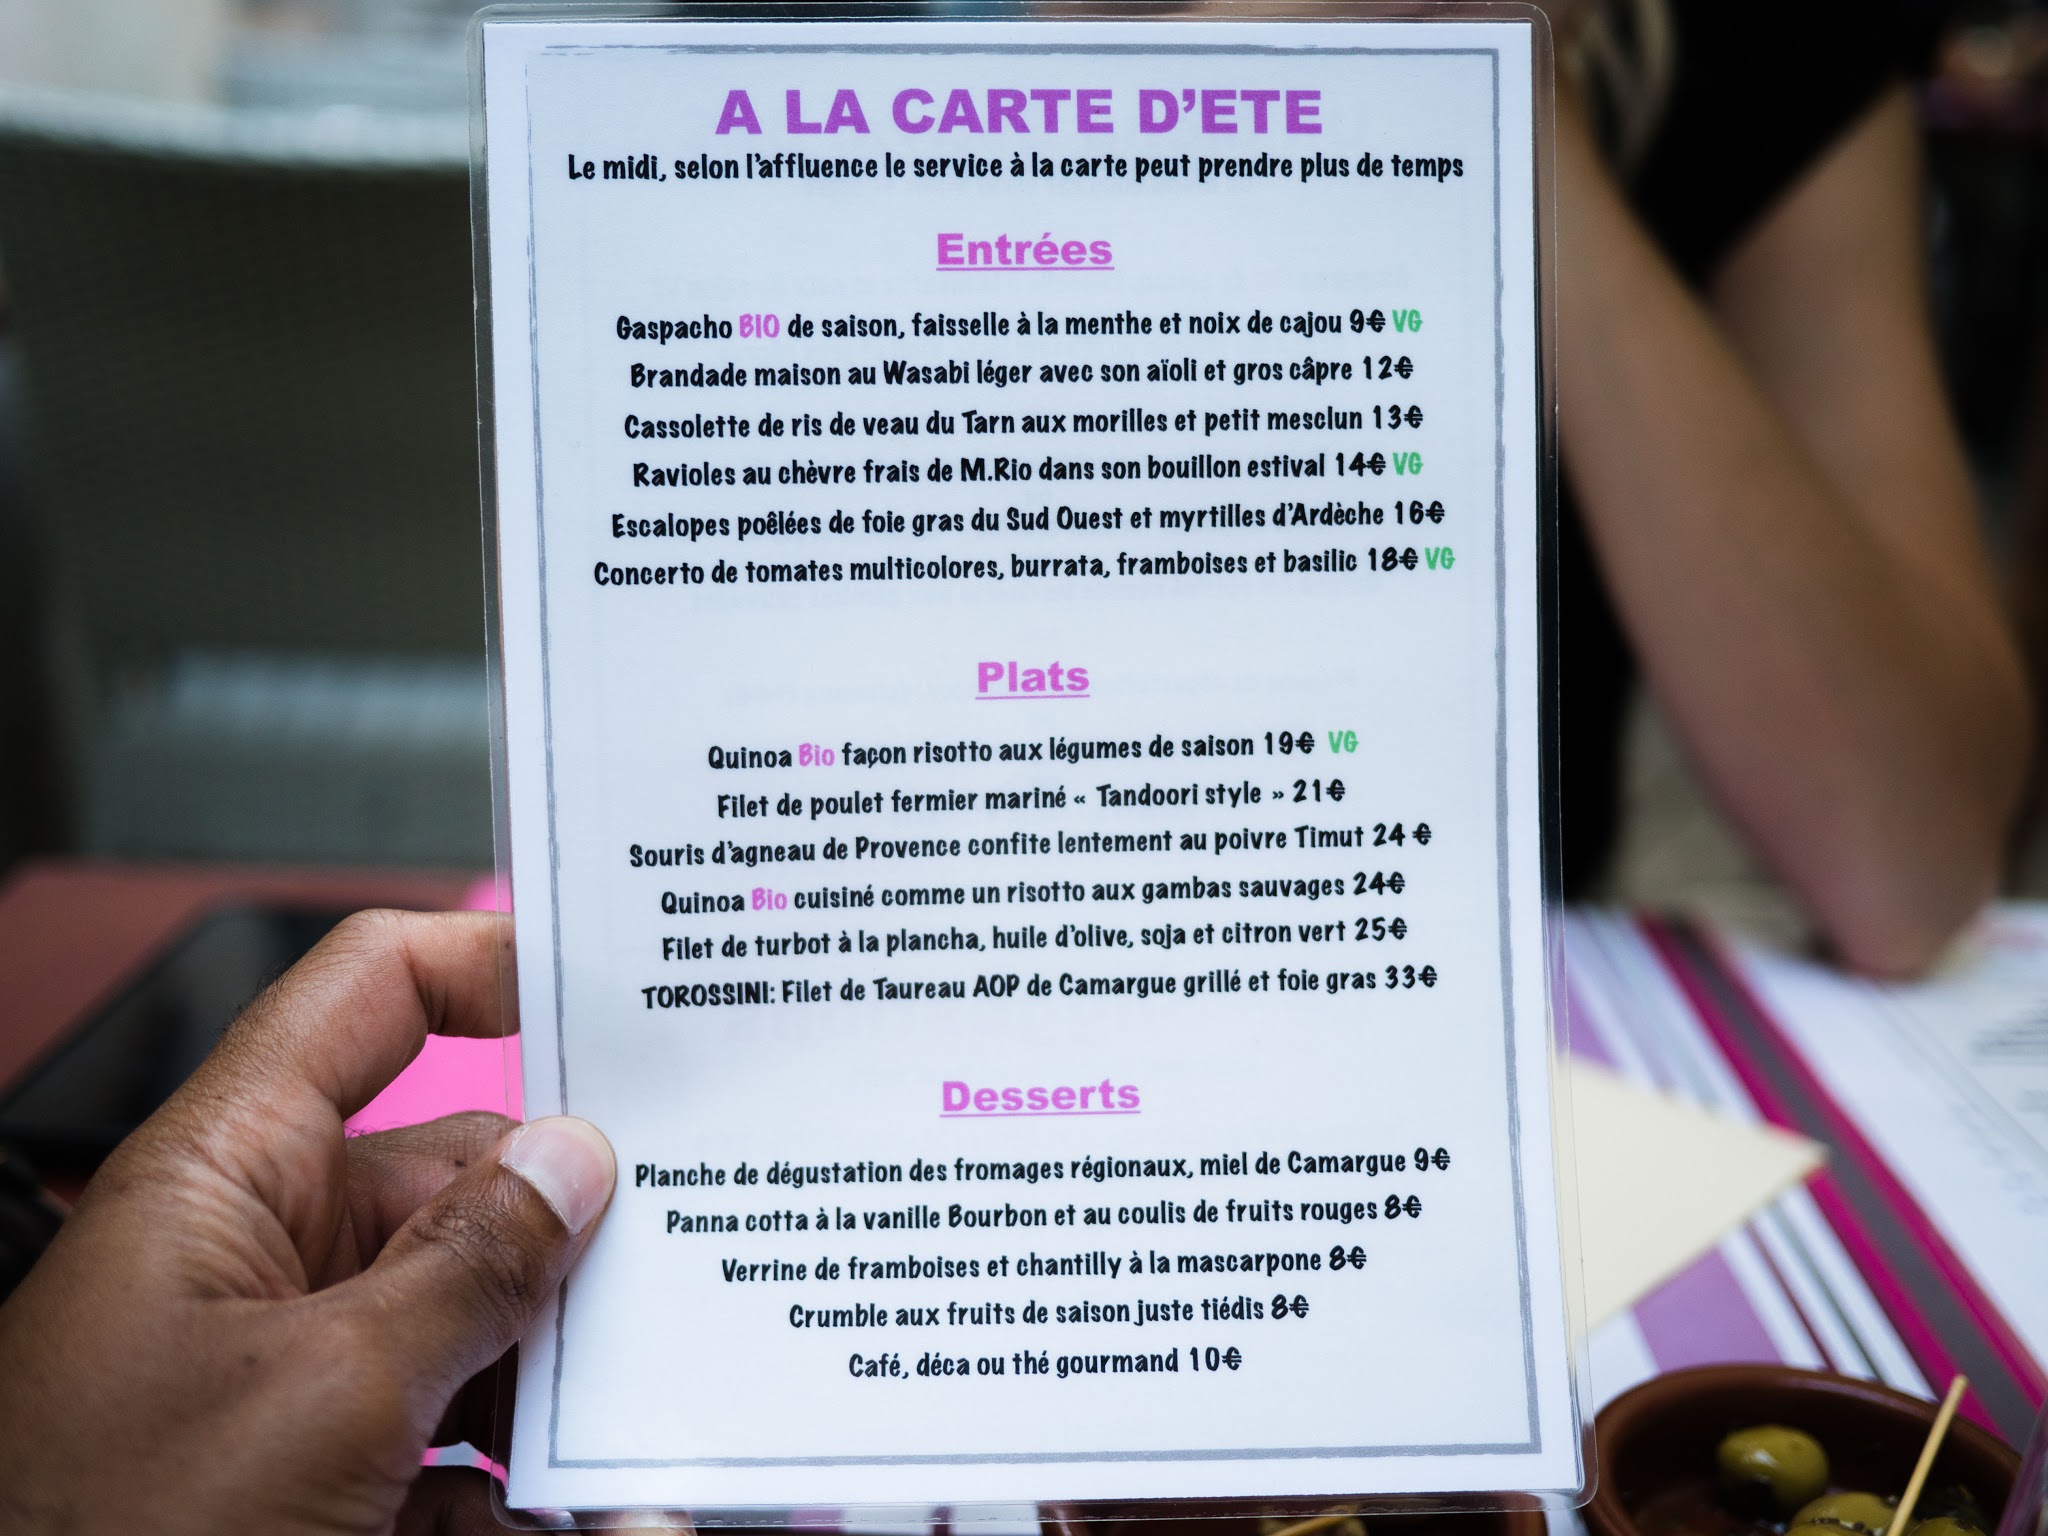 A LA CARTE D'ETE
Le midi, selon l'affluence le service à la carte peut prendre plus de temps
Entrées
Gaspacho BIO de saison, faisselle à la menthe et noix de cajou 9€ VG
Brandade maison au Wasabi léger avec son aïoli et gros câpre 12€
Cassolette de ris de veau du Tarn aux morilles et petit mesclun 13€
Ravioles au chèvre frais de M.Rio dans son bouillon estival 14€ VG
Escalopes poêlées de foie gras du Sud Ouest et myrtilles d'Ardèche 16€
Concerto de tomates multicolores, burrata, framboises et basilic 18€ VG
Plats
Quinoa Bio façon risotto aux légumes de saison 19€ VG
Filet de poulet fermier mariné « Tandoori style » 21€
Souris d'agneau de Provence confite lentement au poivre Timut 24 €
Quinoa Bio cuisiné comme un risotto aux gambas sauvages 24€
Filet de turbot à la plancha, huile d'olive, soja et citron vert 25€
TOROSSINI: Filet de Taureau AOP de Camargue grillé et foie gras 33€
Desserts
Planche de dégustation des fromages régionaux, miel de Camargue 9€
Panna cotta à la vanille Bourbon et au coulis de fruits rouges 8€
Verrine de framboises et chantilly à la mascarpone 8€
Crumble aux fruits de saison juste tiédis 8€
Café, déca ou thé gourmand 10€